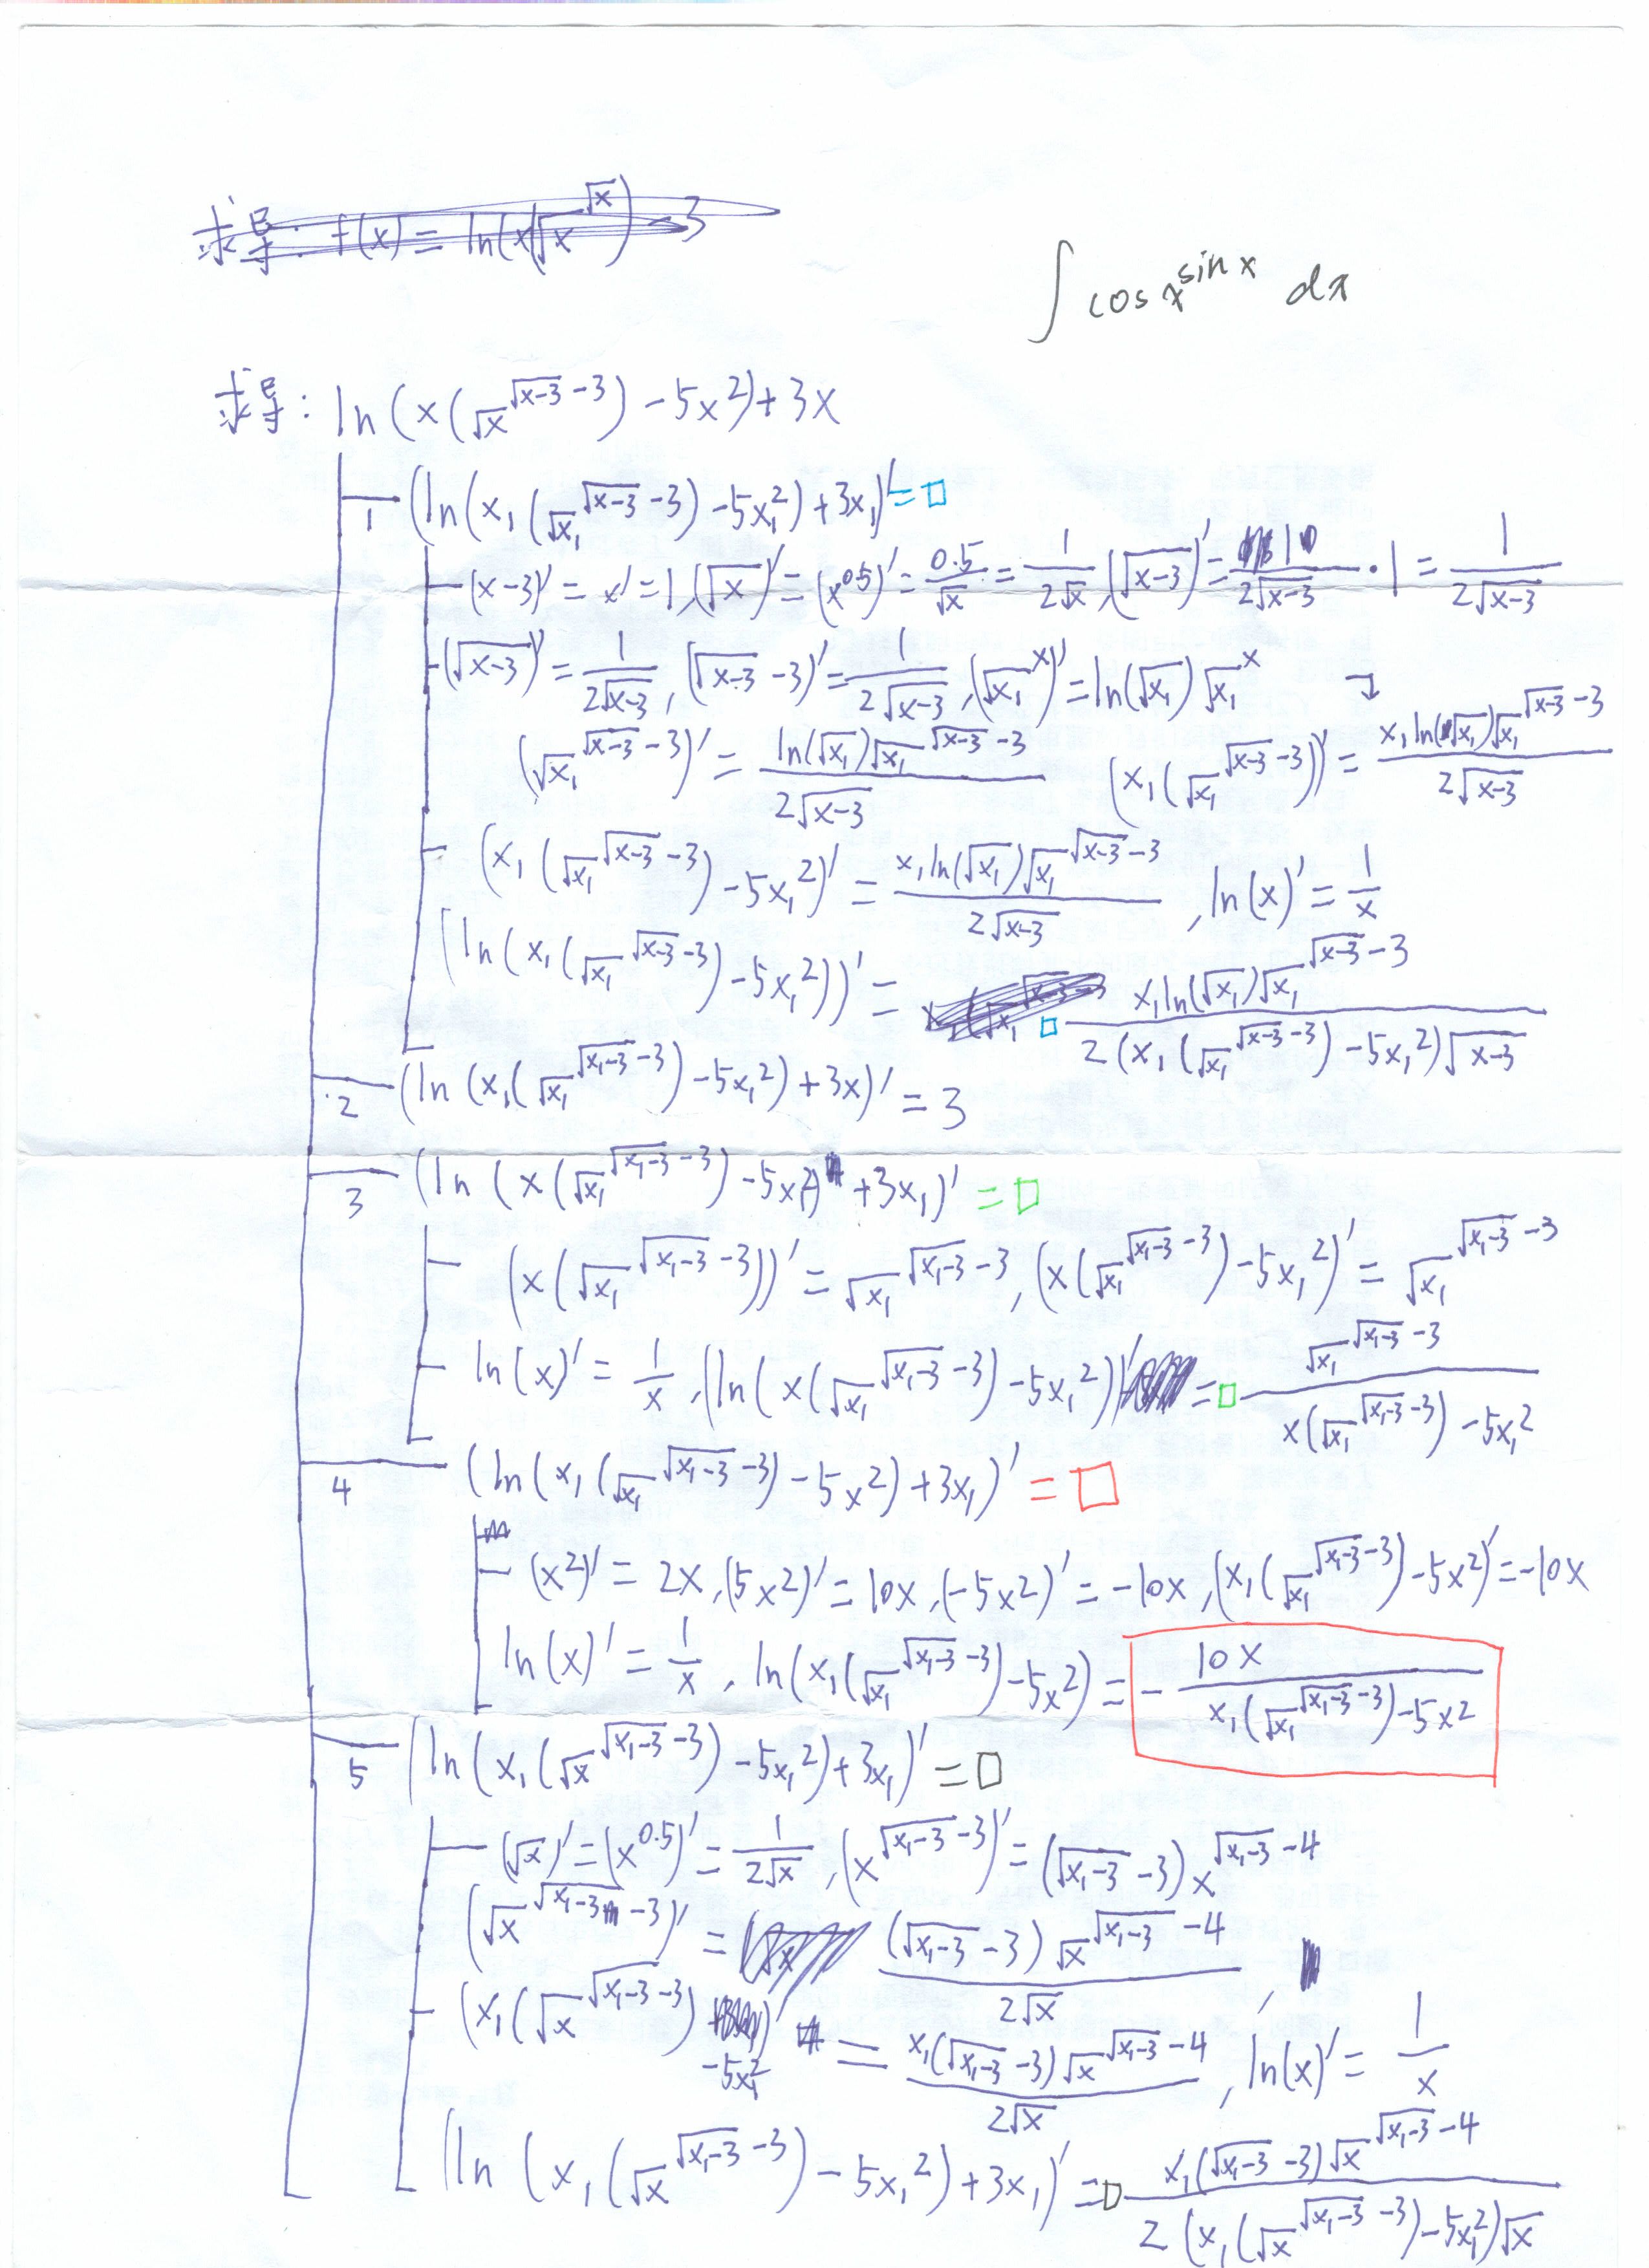 求导: f(x) = ln(x√x^√x) - 3
∫ cos x^sin x dx
求导: ln(x(√x^(√(x-3) -3)) - 5x²) + 3x
1 (ln(x₁(√x₁^(√(x-3) -3)) - 5x₁²) + 3x₁)' = □
(x-3)' = x' = 1, (√x)' = (x^0.5)' = 0.5/√x = 1/(2√x), (√(x-3))' = 1/(2√(x-3)) · 1 = 1/(2√(x-3))
(√(x-3))' = 1/(2√(x-3)), (√(x-3) -3)' = 1/(2√(x-3)), (√x₁^x)' = ln(√x₁)√x₁^x
(√x₁^(√(x-3) -3))' = ln(√x₁)√x₁^(√(x-3) -3)/(2√(x-3)) (x₁(√x₁^(√(x-3) -3)))' = x₁ln(√x₁)√x₁^(√(x-3) -3)/(2√(x-3))
(x₁(√x₁^(√(x-3) -3)) - 5x₁²)' = x₁ln(√x₁)√x₁^(√(x-3) -3)/(2√(x-3)), ln(x)' = 1/x
(ln(x₁(√x₁^(√(x-3) -3)) - 5x₁²))' = □ x₁ln(√x₁)√x₁^(√(x-3) -3)/(2(x₁(√x₁^(√(x-3) -3)) - 5x₁²)√(x-3))
2 (ln(x₁(√x₁^(√(x₁-3) -3)) - 5x₁²) + 3x)' = 3
3 (ln(x(√x₁^(√(x₁-3) -3)) - 5x₁²) + 3x₁)' = □
(x(√x₁^(√(x₁-3) -3)))' = √x₁^(√(x₁-3) -3), (x(√x₁^(√(x₁-3) -3)) - 5x₁²)' = √x₁^(√(x₁-3) -3)
ln(x)' = 1/x, (ln(x(√x₁^(√(x₁-3) -3)) - 5x₁²))' = □ √x₁^(√(x₁-3) -3)/(x(√x₁^(√(x₁-3) -3)) - 5x₁²)
4 (ln(x₁(√x₁^(√(x₁-3) -3)) - 5x²) + 3x₁)' = □
(x²)' = 2x, (5x²)' = 10x, (-5x²)' = -10x, (x₁(√x₁^(√(x₁-3) -3)) - 5x²)' = -10x
ln(x)' = 1/x, ln(x₁(√x₁^(√(x₁-3) -3)) - 5x²) = - 10x/(x₁(√x₁^(√(x₁-3) -3)) - 5x²)
5 (ln(x₁(√x^(√(x₁-3) -3)) - 5x₁²) + 3x₁)' = □
(√x)' = (x^0.5)' = 1/(2√x), (x^(√(x₁-3) -3))' = (√(x₁-3) -3)x^(√(x₁-3) -4)
(√x^(√(x₁-3) -3))' = (√(x₁-3) -3)√x^(√(x₁-3) -4)/(2√x),
(x₁(√x^(√(x₁-3) -3)) - 5x₁²)' = x₁(√(x₁-3) -3)√x^(√(x₁-3) -4)/(2√x), ln(x)' = 1/x
(ln(x₁(√x^(√(x₁-3) -3)) - 5x₁²) + 3x₁)' = □ x₁(√(x₁-3) -3)√x^(√(x₁-3) -4)/(2(x₁(√x^(√(x₁-3) -3)) - 5x₁²)√x)